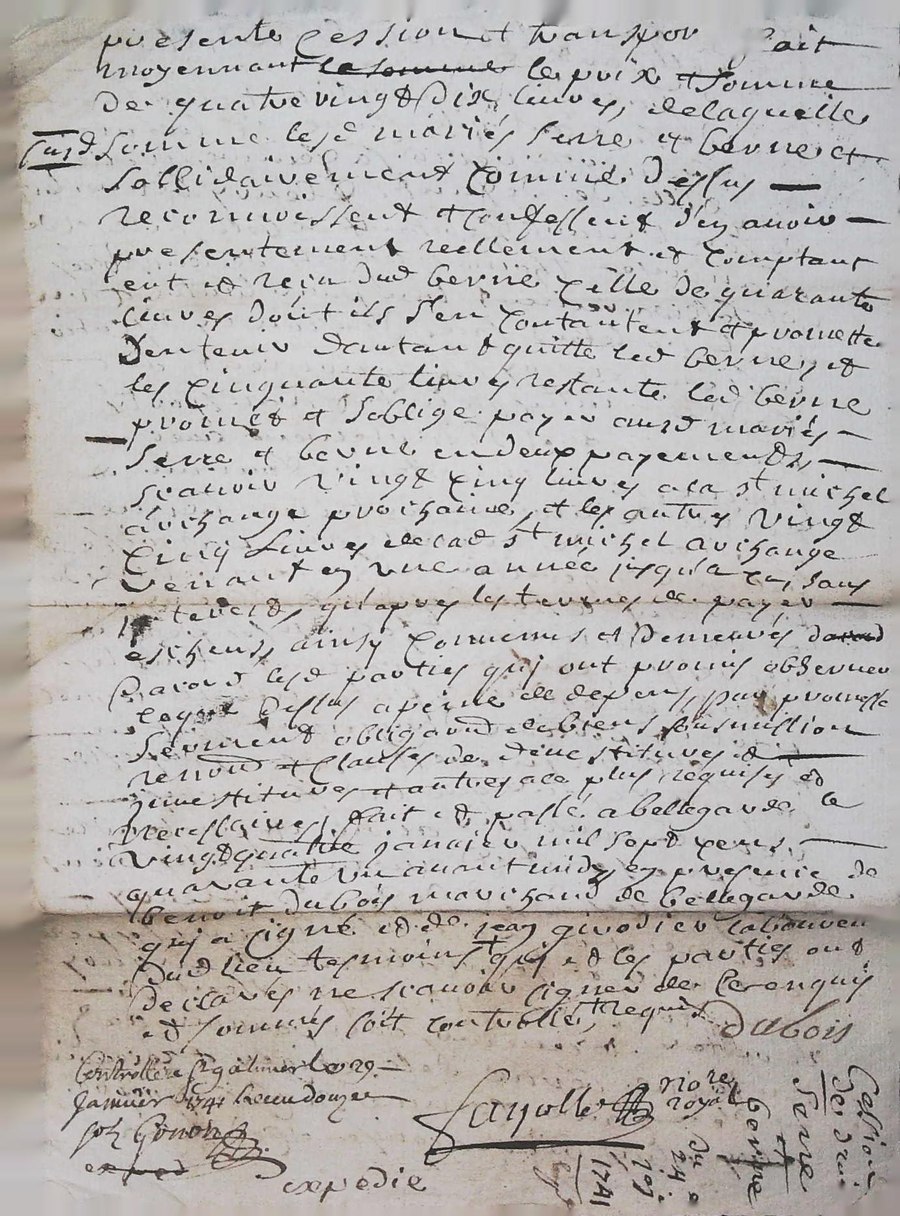 presente Cession et transpor fait
moyennant la somme le prix et somme
De quatrevingt Dix livres, delaquelle
somme lesd mariés serre et berne et
sollidairement comme Dessus
reconnoissent et confessent d'en avoir
presentement reellement et comptant
eut et receu dud berne celle de quarante
livres dont ils s'en contantent et promette
D'en tenir dautant quitte led berne, et
les cinquante livres restante led berne
promet et soblige payer ausd mariés
serre et berne en deux payements,
scavoir vingt cinq livres a la st michel
archange prochaine, et les autres vingt
cinq livres de lad st michel archange
venant en une année jusqu'a ce, sans
interets qu'apres les termes de payer
escheus, ainsy convenus et Demeurés
lesd parties qui ont promis observer
Dessus a peine de depens, par promesse
serment obligaons de biens soumission
renond et Clauses de
investitures et autres a ce plus requises et
necessaires, fait et passé a bellegarde le
vingt quatre janvier mil sept cens
quarante un avant midy, en presence de
benoit dubois marchand de bellegarde
qui a signé et de jean givodier laboureur
Dud lieu tesmoins qui et les parties ont
declarés ne scavoir signer de ce enquis
et sommés soit controllé, requis
dubois
Controllé a St galmier le 29
janvier 1741 Receu douze
sols Gonon
fayolle nore royal
expedie
Cession
des droi
serre
et
berne
du
24
1741